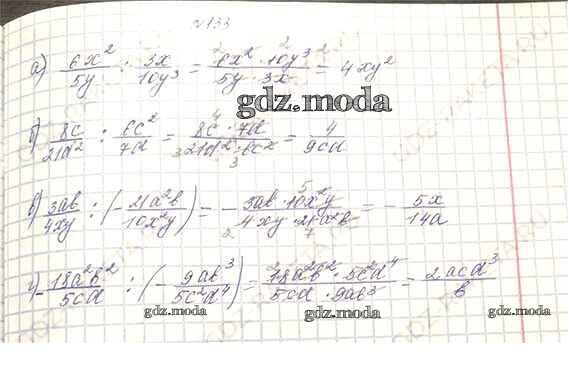 №133
а) 6x²/5y : 3x/10y³ = 6x² · 10y³/5y · 3x = 4xy²
gdz.moda
б) 8c/21d² : 6c²/7d = 8c · 7d/21d² · 6c² = 4/9cd
в) 3ab/4xy : (- 21a²b/10x²y) = - 3ab · 10x²y/4xy · 21a²b = - 5x/14a
г) - 18a²b²/5cd : (- 9ab³/5c²d⁴) = 18a²b² · 5c²d⁴/5cd · 9ab³ = 2acd³/b
gdz.moda gdz.moda gdz.moda